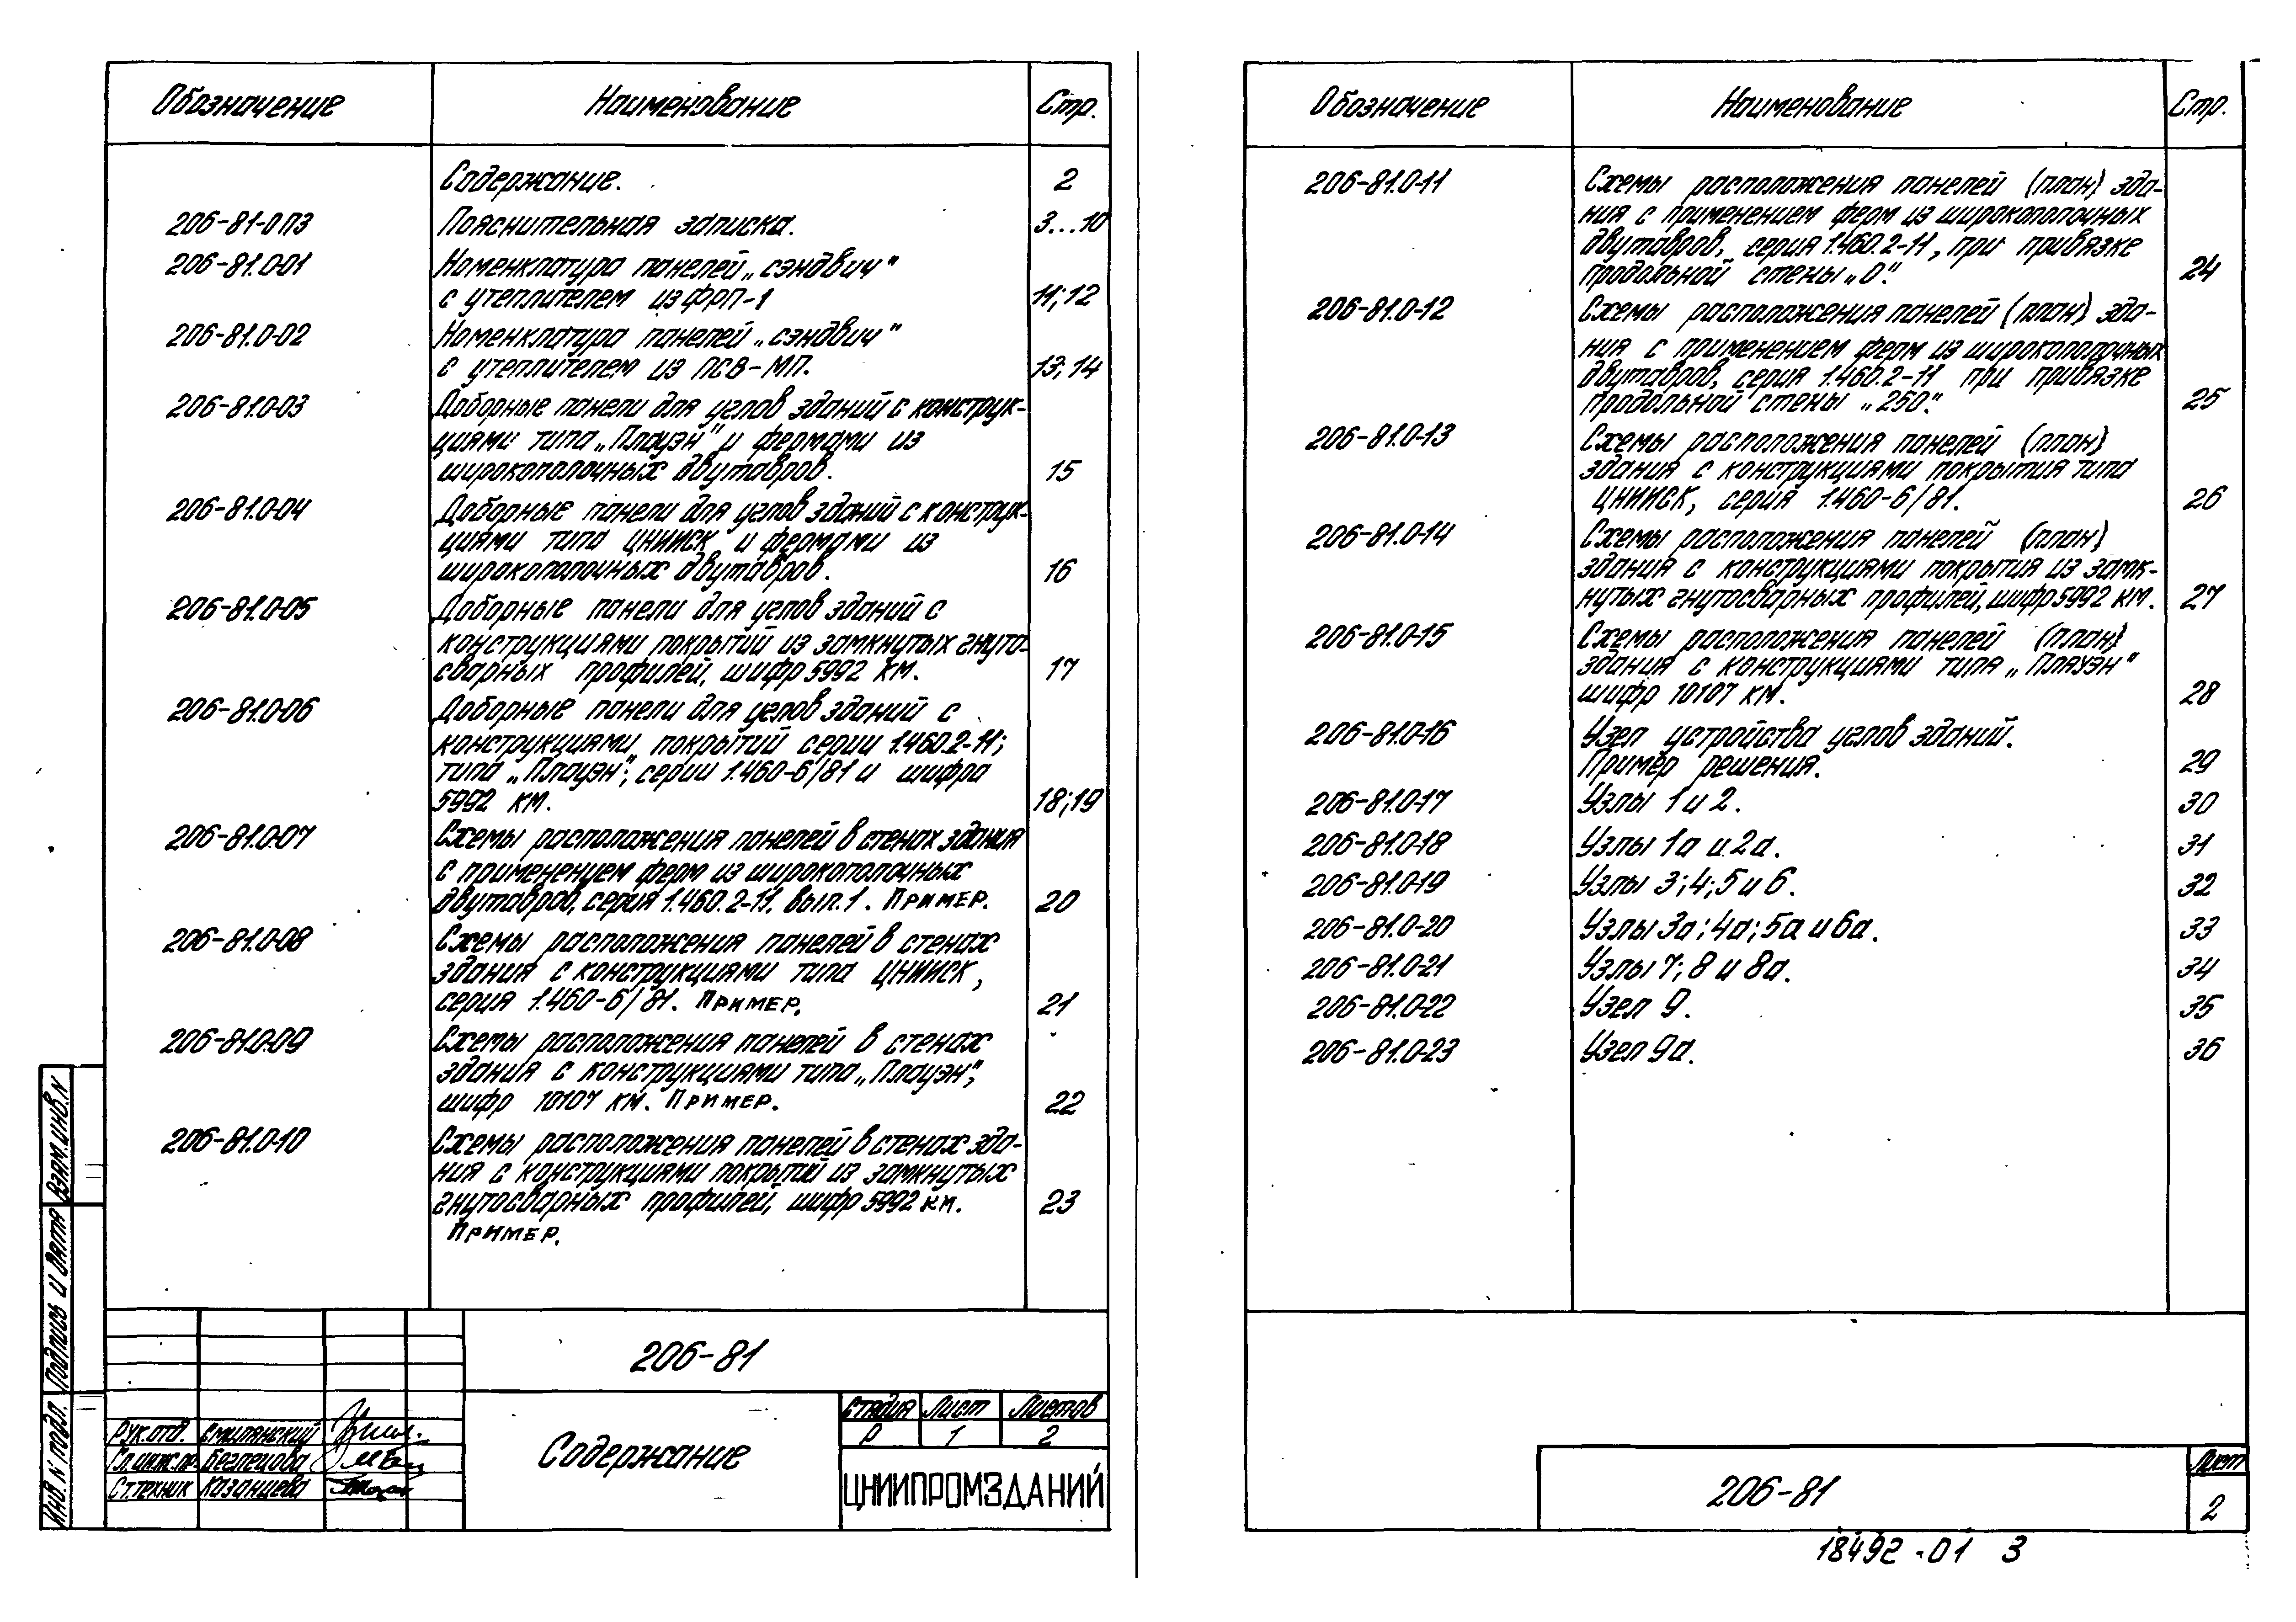 Обозначение Наименование Стр.
Содержание. 2
206-81-0ПЗ Пояснительная записка. 3...10
206-81.0-01 Номенклатура панелей „сэндвич"
с утеплителем из ФРП-1 11;12
206-81.0-02 Номенклатура панелей „сэндвич"
с утеплителем из ПСВ-МП. 13;14
206-81.0-03 Доборные панели для углов зданий с конструк-
циями типа „Плауэн" и фермами из
широкополочных двутавров. 15
206-81.0-04 Доборные панели для углов зданий с конструк-
циями типа ЦНИИСК и фермами из
широкополочных двутавров. 16
206-81.0-05 Доборные панели для углов зданий с
конструкциями покрытий из замкнутых гнуто-
сварных профилей, шифр 5992 КМ. 17
206-81.0-06 Доборные панели для углов зданий с
конструкциями покрытий серии 1.460.2-11;
типа „Плауэн"; серии 1.460-6/81 и шифра
5992 КМ. 18;19
206-81.0-07 Схемы расположения панелей в стенах здания
с применением ферм из широкополочных
двутавров, серия 1.460.2-11, вып.1. Пример. 20
206-81.0-08 Схемы расположения панелей в стенах
здания с конструкциями типа ЦНИИСК,
серия 1.460-6/81. Пример. 21
206-81.0-09 Схемы расположения панелей в стенах
здания с конструкциями типа „Плауэн",
шифр 10107 КМ. Пример. 22
206-81.0-10 Схемы расположения панелей в стенах зда-
ния с конструкциями покрытий из замкнутых
гнутосварных профилей, шифр 5992 КМ. 23
Пример.
206-81
Содержание
Стадия Лист Листов
Р 1 2
Рук.отд. Смилянский
Гл.инж.пр. Беглецова
Ст.техник Казанцева
ЦНИИПРОМЗДАНИЙ
Взам.инв.N
Подпись и дата
Инв.N подл.
Обозначение Наименование Стр.
206-81.0-11 Схемы расположения панелей (план) зда-
ния с применением ферм из широкополочных
двутавров, серия 1.460.2-11, при привязке
продольной стены „0". 24
206-81.0-12 Схемы расположения панелей (план) зда-
ния с применением ферм из широкополочных
двутавров, серия 1.460.2-11 при привязке
продольной стены „250". 25
206-81.0-13 Схемы расположения панелей (план)
здания с конструкциями покрытия типа
ЦНИИСК, серия 1.460-6/81. 26
206-81.0-14 Схемы расположения панелей (план)
здания с конструкциями покрытия из замк-
нутых гнутосварных профилей, шифр 5992 КМ. 27
206-81.0-15 Схемы расположения панелей (план)
здания с конструкциями типа „Плауэн"
шифр 10107 КМ. 28
206-81.0-16 Узел устройства углов зданий.
Пример решения. 29
206-81.0-17 Узлы 1 и 2. 30
206-81.0-18 Узлы 1а и 2а. 31
206-81.0-19 Узлы 3;4;5 и 6. 32
206-81.0-20 Узлы 3а;4а;5а и 6а. 33
206-81.0-21 Узлы 7;8 и 8а. 34
206-81.0-22 Узел 9. 35
206-81.0-23 Узел 9а. 36
206-81
Лист
2
18492-01 3